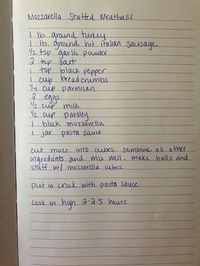 Mozzarella Stuffed Meatballs
1 lb. ground turkey
1 lb. ground hot italian sausage
1/2 tsp garlic powder
2 tsp salt
1 tsp black pepper
1 cup breadcrumbs
3/4 cup parmesan
2 eggs
1/2 cup milk
1/2 cup parsley
1 block mozzarella
1 jar pasta sauce
cut mozz. into cubes. combine all other
ingredients and mix well. make balls and
stuff w/ mozzarella cubes.
put in crock with pasta sauce
cook on high 2-2.5 hours